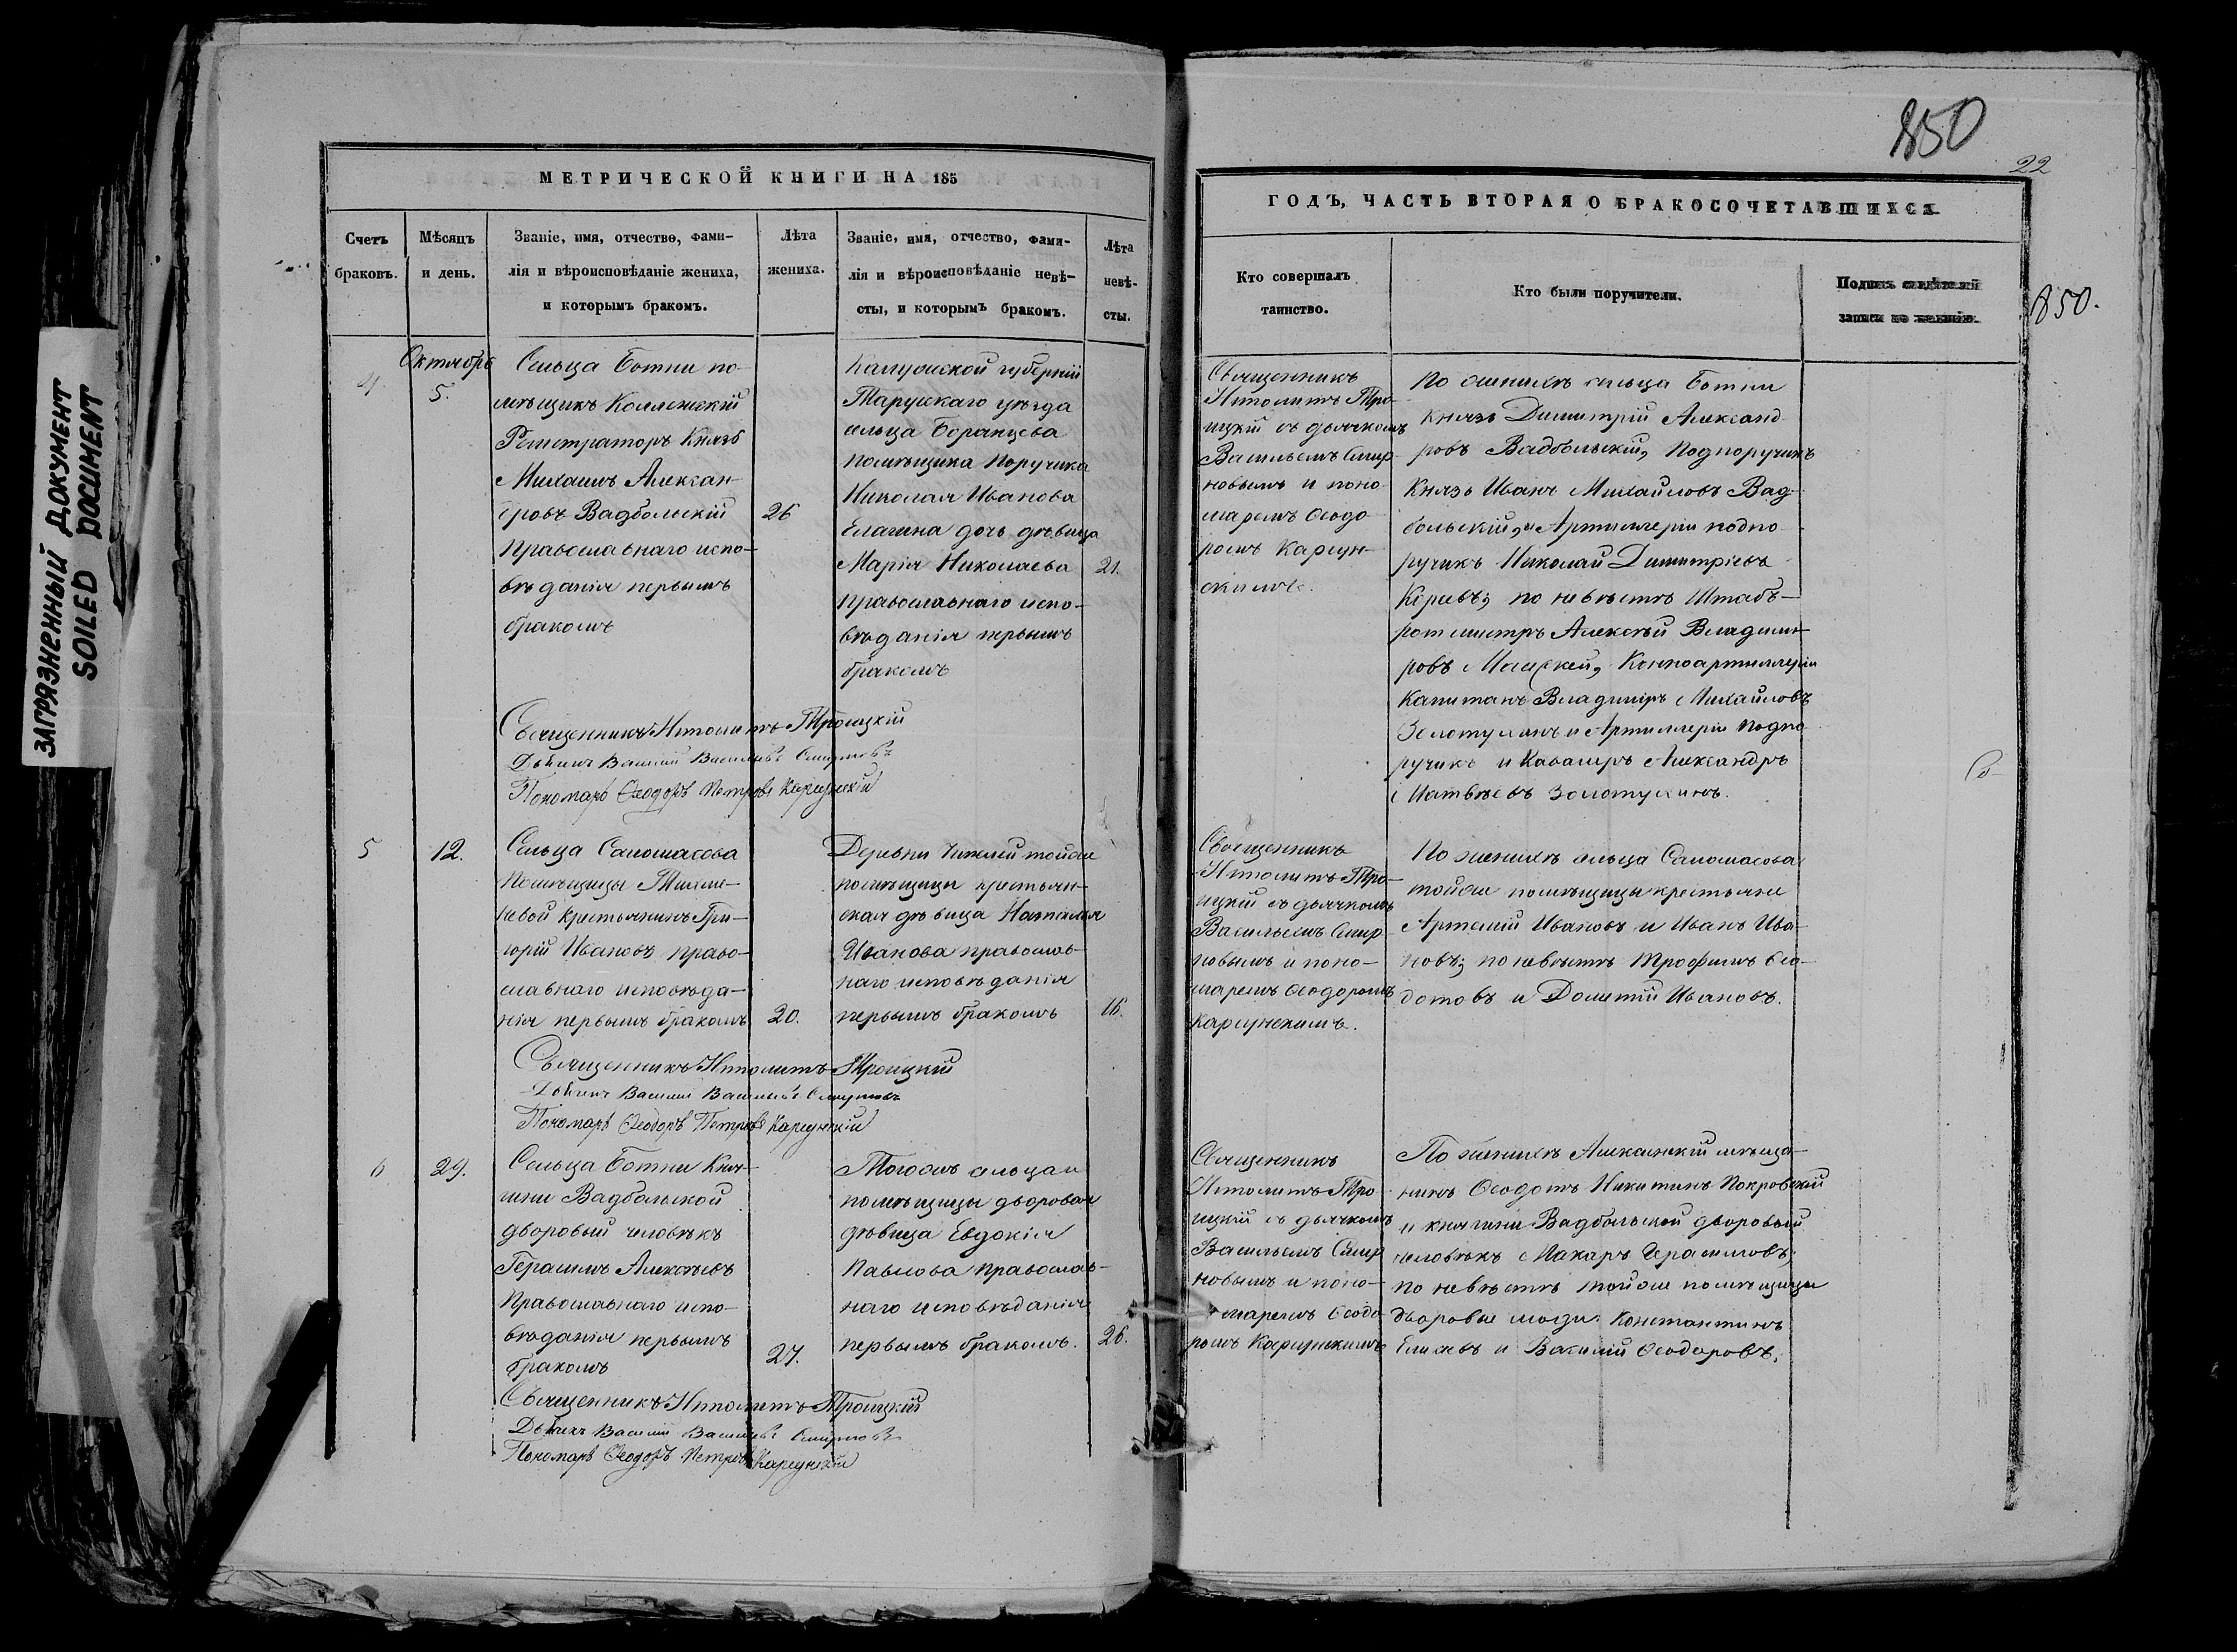 ЗАГРЯЗНЕННЫЙ ДОКУМЕНТ
SOILED DOCUMENT
МЕТРИЧЕСКОЙ КНИГИ НА 185
Счетъ
браковъ.
Мѣсяцъ
и день.
Званіе, имя, отчество, фами-
лія и вѣроисповѣданіе жениха,
и которымъ бракомъ.
Лѣта
жениха.
Званіе, имя, отчество, фами-
лія и вѣроисповѣданіе невѣ-
сты, и которымъ бракомъ.
Лѣта
невѣ-
сты.
4.
Октябрь
5.
Сельца Ботни по-
мѣщикъ Коллежскій
Регистраторъ Князь
Михаилъ Алексан-
дровъ Вадбольскій
православнаго испо-
вѣданія первымъ
бракомъ
26
Калужской губерніи
Тарускаго уѣзда
сельца Боранцева
помѣщика Поручика
Николая Иванова
Елагина дочь дѣвица
Марія Николаева
православнаго испо-
вѣданія первымъ
бракомъ
21.
Священникъ Иполитъ Троицкій
Дьячекъ Василій Васильевъ Смирновъ
Пономарь Ѳеодоръ Петровъ Карсунскій
5
12.
Сельца Саломасова
помѣщицы
крестьянинъ Гри-
горій Ивановъ право-
славнаго исповѣда-
нія первымъ бракомъ
20.
Деревни тойже
помѣщицы крестьян-
ская дѣвица Наталія
Иванова православ-
наго исповѣданія
первымъ бракомъ
16.
Священникъ Иполитъ Троицкій
Дьячекъ Василій Васильевъ Смирновъ
Пономарь Ѳеодоръ Петровъ Карсунскій
6
29.
Сельца Ботни Кня-
гини Вадбольской
дворовый человѣкъ
Герасимъ Алексѣевъ
Православнаго испо-
вѣданія первымъ
бракомъ
27.
Тогожъ сельца и
помѣщицы дворовая
дѣвица Евдокія
Павлова православ-
наго исповѣданія
первымъ бракомъ.
26.
Священникъ Иполитъ Троицкій
Дьячекъ Василій Васильевъ Смирновъ
Пономарь Ѳеодоръ Петровъ Карсунскій
850
22
ГОДЪ, ЧАСТЬ ВТОРАЯ О БРАКОСОЧЕТАВШИХСЯ
Кто совершалъ
таинство.
Кто были поручители.
Подпись свидѣтелей
записи по желанію.
850.
Священникъ
Иполитъ Тро-
ицкій съ дьячкомъ
Васильемъ Смир-
новымъ и поно-
маремъ Ѳеодо-
ромъ Карсун-
скимъ.
По женихѣ сельца Ботни
князь Димитрій Александ-
ровъ Вадбольскій, Подпоручикъ
Князь Иванъ Михайловъ Вад-
больскій, и Артиллеріи подпо-
ручикъ Николай Димитріевъ
по невѣстѣ Штабъ-
ротмистръ Алексѣй Владими-
ровъ Конноартиллеріи
Капитанъ Владиміръ Михайловъ
Золотухинъ и Артиллеріи подпо-
ручикъ и Кавалеръ Александръ
Матвѣевъ Золотухинъ.
Священникъ
Иполитъ Тро-
ицкій съ дьячкомъ
Васильемъ Смир-
новымъ и поно-
маремъ Ѳеодоромъ
Карсунскимъ.
По женихѣ сельца Саломасова
тойже помѣщицы крестьяне
Артемій Ивановъ и Иванъ Ива-
новъ; по невѣстѣ Трофимъ Ѳео-
дотовъ и Дометій Ивановъ.
Священникъ
Иполитъ Тро-
ицкій съ дьячкомъ
Васильемъ Смир-
новымъ и поно-
маремъ Ѳеодо-
ромъ Карсунскимъ
По женихѣ Алексинскій мѣща-
нинъ Ѳеодотъ Никитинъ Покровскій
и княгини Вадбольской дворовый
человѣкъ Макаръ Герасимовъ;
по невѣстѣ тойже помѣщицы
дворовые люди: Константинъ
и Василій Ѳеодоровъ.